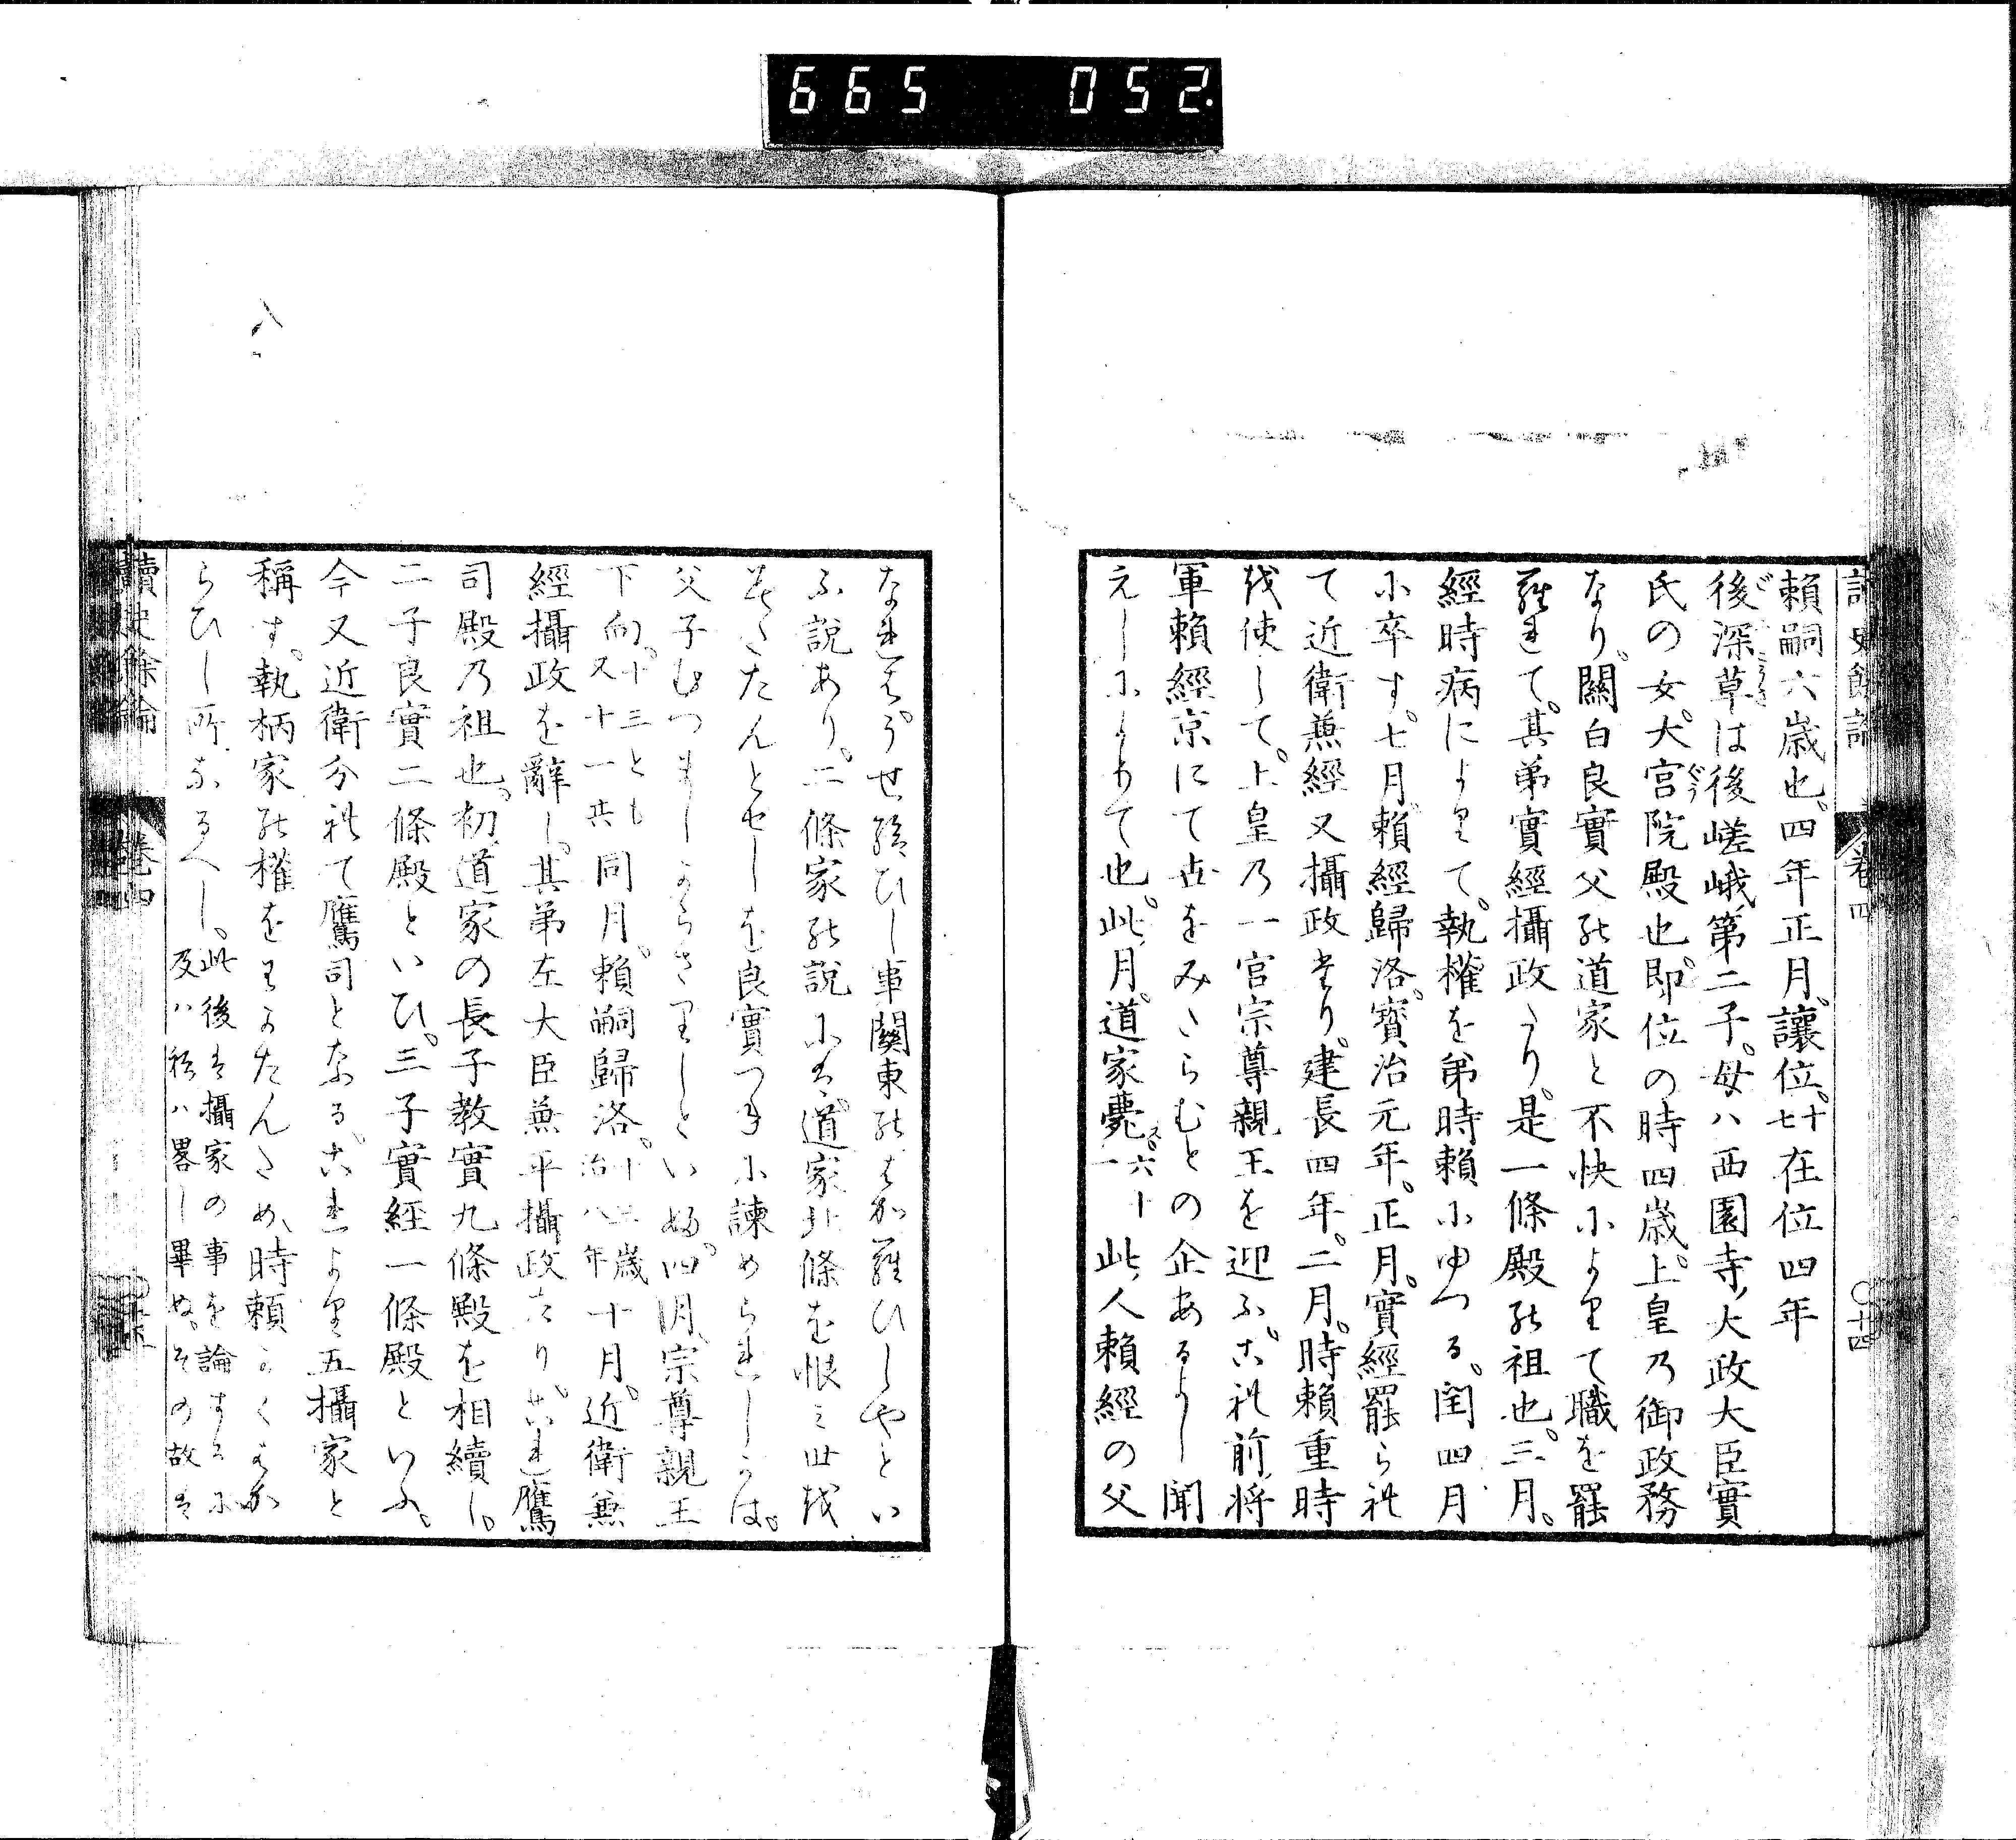 665 052.
讀史餘論 卷四 〇十四
賴嗣六歳也四年正月讓位十七在位四年
後深草は後嵯峨第二子母ハ西園寺大政大臣實
氏の女大宮院殿也即位の時四歳上皇乃御政務
なり關白良實父能道家と不快によりて職を罷
られて其弟實經攝政たり是一條殿能祖也三月
經時病によりて執權を弟時賴にゆつる閏四月
に卒す七月賴經歸洛寳治元年正月實經罷られ
て近衛兼經又攝政たり建長四年二月時賴重時
を使して上皇乃一宮宗尊親王を迎ふこれ前將
軍賴經京にて世をみたらむとの企あるよし聞
えしによりて也此月道家薨ス六十一此人賴經の父
なれはうせ給ひし事關東能はからひしやとい
ふ説あり二條家能説には道家北條を恨み世を
みたさんとせしを良實つねに諫められしかは
父子むつましからさりしといふ四月宗尊親王
下向十三とも又十一共同月賴嗣歸洛十三歳治八年十月近衛兼
經攝政を辭し其弟左大臣兼平攝政たりこれ鷹
司殿乃祖也初道家の長子教實九條殿を相續し
二子良實二條殿といひ三子實經一條殿といふ
今又近衛分れて鷹司となるこれより五攝家と
稱す執柄家能權をわかたんため時賴かくはか
らひし所なるへし此後は攝家の事を論するに及ハねハ畧し畢ぬその故は
讀史餘論 卷四